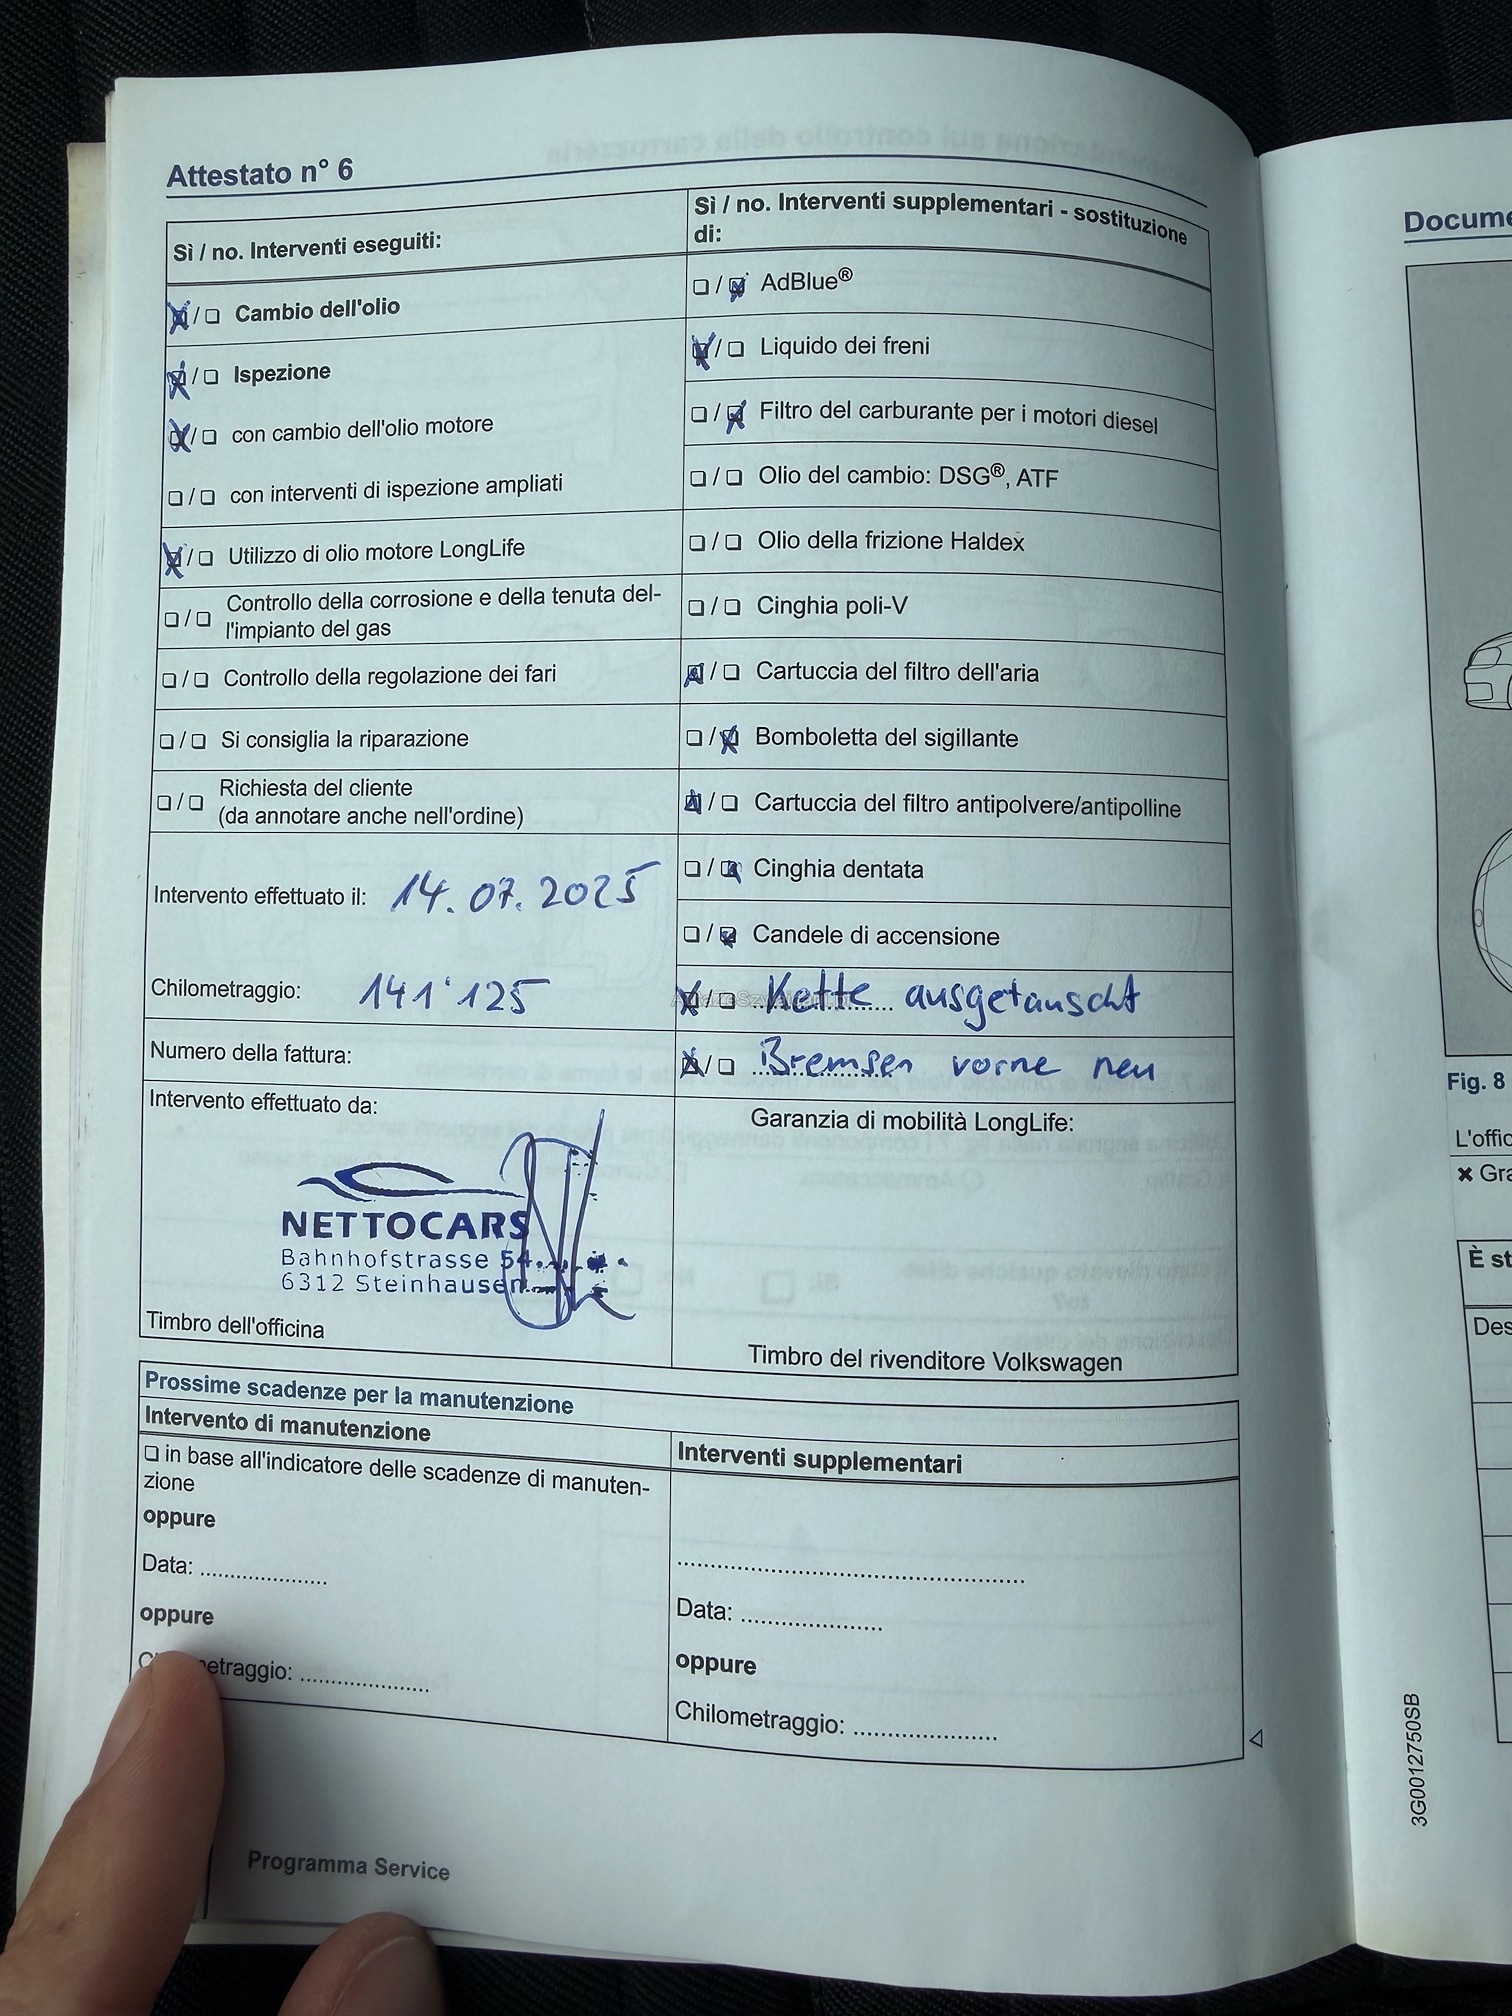 Attestato n° 6
Sì / no. Interventi eseguiti:
☒ / ❑ Cambio dell'olio
☒ / ❑ Ispezione
☒ / ❑ con cambio dell'olio motore
❑ / ❑ con interventi di ispezione ampliati
☒ / ❑ Utilizzo di olio motore LongLife
❑ / ❑ Controllo della corrosione e della tenuta del-
l'impianto del gas
❑ / ❑ Controllo della regolazione dei fari
❑ / ❑ Si consiglia la riparazione
❑ / ❑ Richiesta del cliente
(da annotare anche nell'ordine)
Intervento effettuato il: 14.07.2025
Chilometraggio: 141'125
Numero della fattura:
Intervento effettuato da:
NETTOCARS
Bahnhofstrasse 54
6312 Steinhausen
Timbro dell'officina
Sì / no. Interventi supplementari - sostituzione
di:
❑ / ☒ AdBlue®
☒ / ❑ Liquido dei freni
❑ / ☒ Filtro del carburante per i motori diesel
❑ / ❑ Olio del cambio: DSG®, ATF
❑ / ❑ Olio della frizione Haldex
❑ / ❑ Cinghia poli-V
☒ / ❑ Cartuccia del filtro dell'aria
❑ / ☒ Bomboletta del sigillante
☒ / ❑ Cartuccia del filtro antipolvere/antipolline
❑ / ☒ Cinghia dentata
❑ / ☒ Candele di accensione
☒ / ❑ Kette ausgetauscht
☒ / ❑ Bremsen vorne neu
Garanzia di mobilità LongLife:
Timbro del rivenditore Volkswagen
Prossime scadenze per la manutenzione
Intervento di manutenzione
❑ in base all'indicatore delle scadenze di manuten-
zione
oppure
Data: .....................
oppure
etraggio: .....................
Interventi supplementari
.....................................................
Data: .....................
oppure
Chilometraggio: .....................
Programma Service
Docume
Fig. 8
L'offic
✖ Gra
È st
Des
3G0012750SB